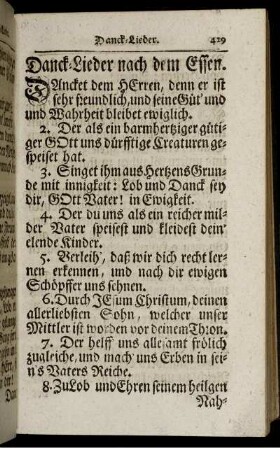 Danck-Lieder. 429
Danck-Lieder nach dem Essen.
DAncket dem HErren, denn er ist
sehr freundlich, und seine Güt' und
und Wahrheit bleibet ewiglich.
2. Der als ein barmhertziger güti-
ger GOtt uns dürfftige Creaturen ge-
speiset hat.
3. Singet ihm aus Hertzens Grun-
de mit innigkeit: Lob und Danck sey
dir, GOtt Vater! in Ewigkeit.
4. Der du uns als ein reicher mil-
der Vater speisest und kleidest dein'
elende Kinder.
5. Verleih', daß wir dich recht ler-
nen erkennen, und nach dir ewigen
Schöpffer uns sehnen.
6. Durch JEsum Christum, deinen
allerliebsten Sohn, welcher unser
Mittler ist worden vor deinem Thron.
7. Der helff uns allesamt frölich
zugleiche, und mach' uns Erben in sei-
n's Vaters Reiche.
8. Zu Lob und Ehren seinem heilgen
Nah-